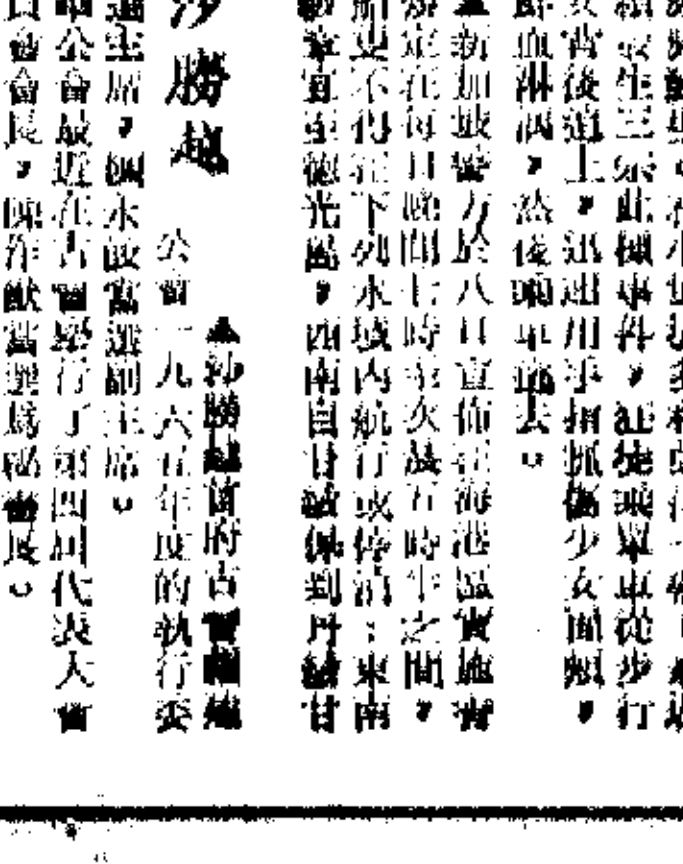 發生三宗此類事件，狂徒乘單車從步行
女背後追上，迅速用手指抓傷少女面頰，
血淋漓，然後乘車逃去。
▲新加坡警方於八日宣佈在海港區實施宵
定在每日晚間七時至次晨五時半之間，
船更不得在下列水域內航行或停泊：東南
章宜至德光島，西南自甘榜 到丹榕甘
沙勝越
▲沙勝越首府古晉福州
公會一九六五年度的執行委
選主席， 永波當選副主席。
公會最近在古晉舉行了第四屆代表大會
會會長，陳作猷當選爲秘書長。